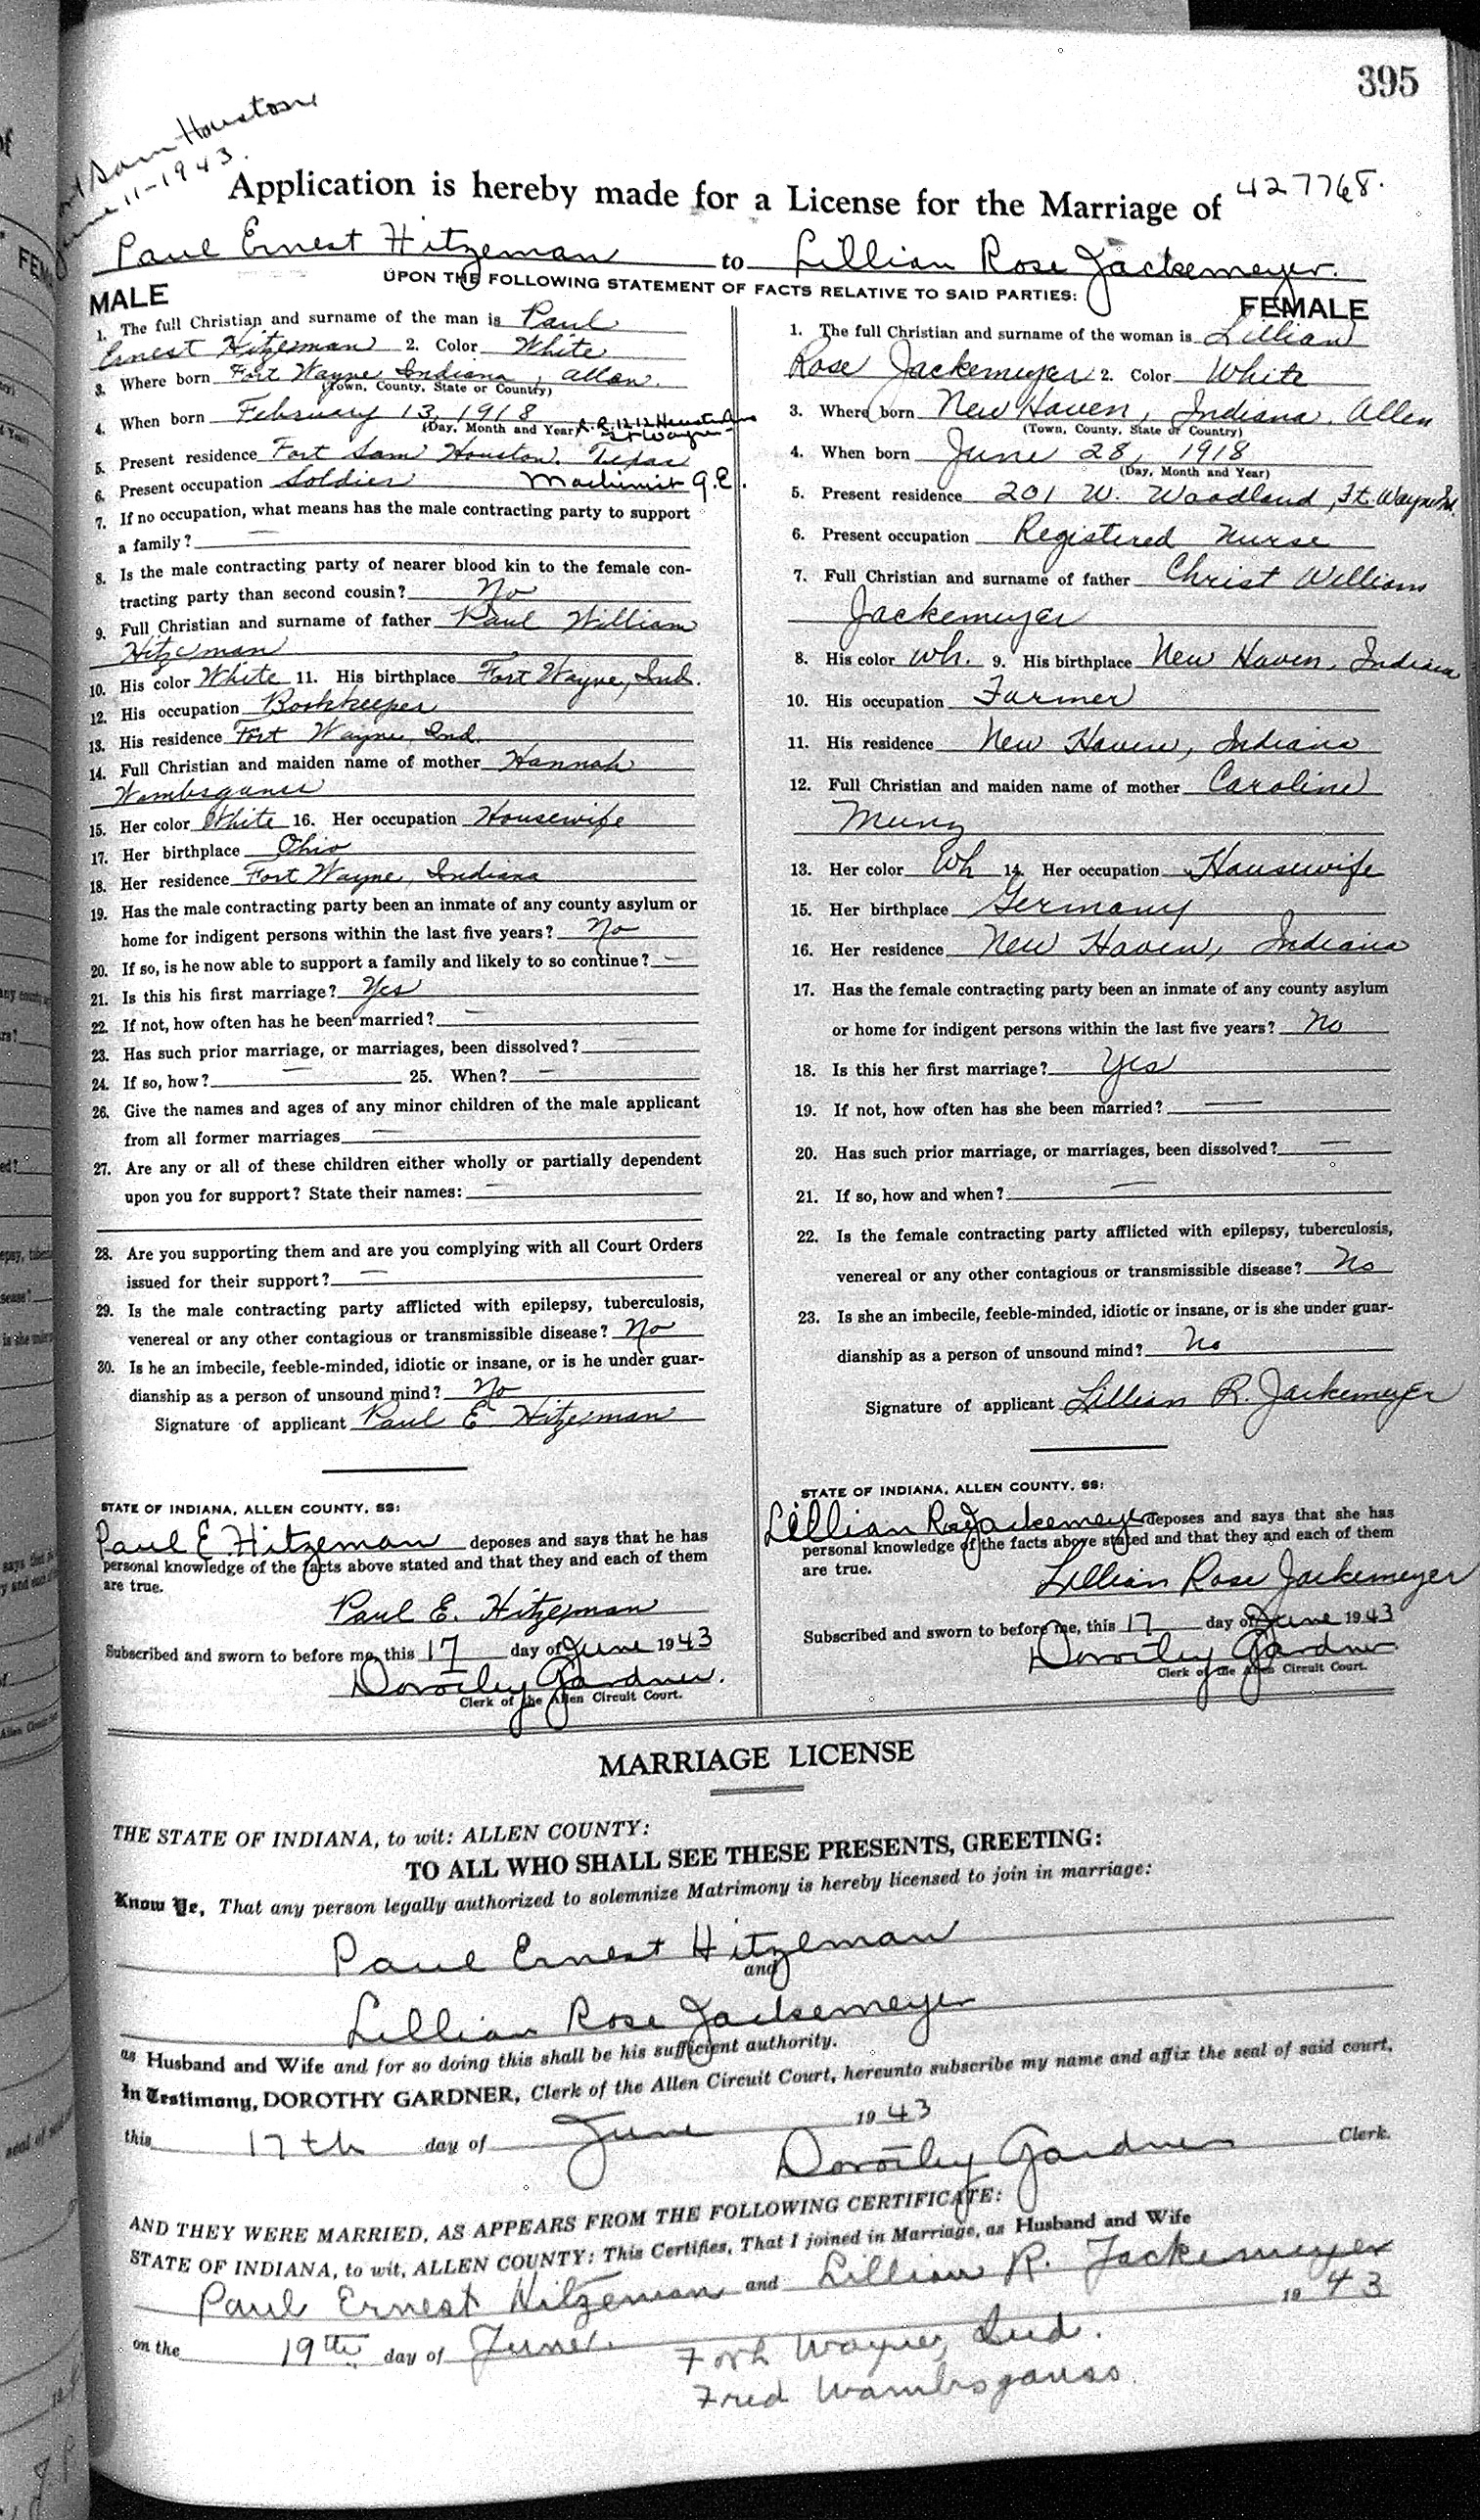 395
Sam Houston
11-1943.
Application is hereby made for a License for the Marriage of 427768.
Paul Ernest Hitzeman to Lillian Rose Jackemeyer.
UPON THE FOLLOWING STATEMENT OF FACTS RELATIVE TO SAID PARTIES:
MALE
1. The full Christian and surname of the man is Paul
Ernest Hitzeman 2. Color White
3. Where born Fort Wayne, Indiana, Allen.
(Town, County, State or Country)
4. When born February 13, 1918
(Day, Month and Year) 1212 Houston
Ft Wayne
5. Present residence Fort Sam Houston, Texas
6. Present occupation Soldier Machinist G.E.
7. If no occupation, what means has the male contracting party to support
a family? —
8. Is the male contracting party of nearer blood kin to the female con-
tracting party than second cousin? No
9. Full Christian and surname of father Paul William
Hitzeman
10. His color White 11. His birthplace Fort Wayne, Ind.
12. His occupation Bookkeeper
13. His residence Fort Wayne, Ind.
14. Full Christian and maiden name of mother Hannah
Wambsganss
15. Her color White 16. Her occupation Housewife
17. Her birthplace Ohio
18. Her residence Fort Wayne, Indiana
19. Has the male contracting party been an inmate of any county asylum or
home for indigent persons within the last five years? No
20. If so, is he now able to support a family and likely to so continue? —
21. Is this his first marriage? Yes
22. If not, how often has he been married? —
23. Has such prior marriage, or marriages, been dissolved? —
24. If so, how? — 25. When? —
26. Give the names and ages of any minor children of the male applicant
from all former marriages —
27. Are any or all of these children either wholly or partially dependent
upon you for support? State their names: —
28. Are you supporting them and are you complying with all Court Orders
issued for their support? —
29. Is the male contracting party afflicted with epilepsy, tuberculosis,
venereal or any other contagious or transmissible disease? No
30. Is he an imbecile, feeble-minded, idiotic or insane, or is he under guar-
dianship as a person of unsound mind? No
Signature of applicant Paul E. Hitzeman
STATE OF INDIANA, ALLEN COUNTY, SS:
Paul E Hitzeman deposes and says that he has
personal knowledge of the facts above stated and that they and each of them
are true.
Paul E. Hitzeman
Subscribed and sworn to before me, this 17 day of June 1943
Dorothy Gardner.
Clerk of the Allen Circuit Court.
FEMALE
1. The full Christian and surname of the woman is Lillian
Rose Jackemeyer 2. Color White
3. Where born New Haven, Indiana, Allen
(Town, County, State or Country)
4. When born June 28, 1918
(Day, Month and Year)
5. Present residence 201 W. Woodland, Ft. Wayne Ind.
6. Present occupation Registered Nurse
7. Full Christian and surname of father Christ William
Jackemeyer
8. His color Wh. 9. His birthplace New Haven, Indiana
10. His occupation Farmer
11. His residence New Haven, Indiana
12. Full Christian and maiden name of mother Caroline
Munz
13. Her color Wh 14. Her occupation Housewife
15. Her birthplace Germany
16. Her residence New Haven, Indiana
17. Has the female contracting party been an inmate of any county asylum
or home for indigent persons within the last five years? No
18. Is this her first marriage? Yes
19. If not, how often has she been married? —
20. Has such prior marriage, or marriages, been dissolved? —
21. If so, how and when? —
22. Is the female contracting party afflicted with epilepsy, tuberculosis,
venereal or any other contagious or transmissible disease? No
23. Is she an imbecile, feeble-minded, idiotic or insane, or is she under guar-
dianship as a person of unsound mind? No
Signature of applicant Lillian R. Jackemeyer
STATE OF INDIANA, ALLEN COUNTY, SS:
Lillian Rose Jackemeyer deposes and says that she has
personal knowledge of the facts above stated and that they and each of them
are true.
Lillian Rose Jackemeyer
Subscribed and sworn to before me, this 17 day of June 1943
Dorothy Gardner
Clerk of the Allen Circuit Court.
MARRIAGE LICENSE
THE STATE OF INDIANA, to wit: ALLEN COUNTY:
TO ALL WHO SHALL SEE THESE PRESENTS, GREETING:
Know Ye, That any person legally authorized to solemnize Matrimony is hereby licensed to join in marriage:
Paul Ernest Hitzeman
and
Lillian Rose Jackemeyer
as Husband and Wife and for so doing this shall be his sufficient authority.
In Testimony, DOROTHY GARDNER, Clerk of the Allen Circuit Court, hereunto subscribe my name and affix the seal of said court,
this 17th day of June 1943
Dorothy Gardner Clerk.
AND THEY WERE MARRIED, AS APPEARS FROM THE FOLLOWING CERTIFICATE:
STATE OF INDIANA, to wit, ALLEN COUNTY: This Certifies, That I joined in Marriage, as Husband and Wife
Paul Ernest Hitzeman and Lillian R. Jackemeyer
on the 19th day of June. 1943
Fort Wayne, Ind.
Fred Wambsganss.